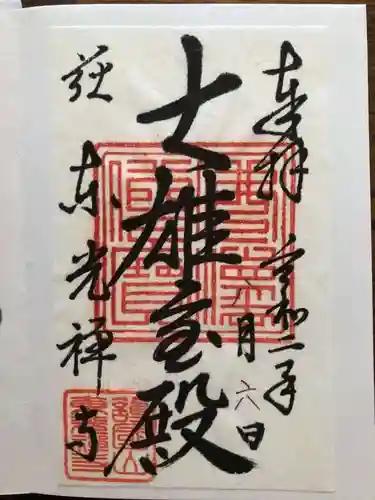 奉拝 令和二年
八月六日
大雄宝殿
萩 東光禅寺